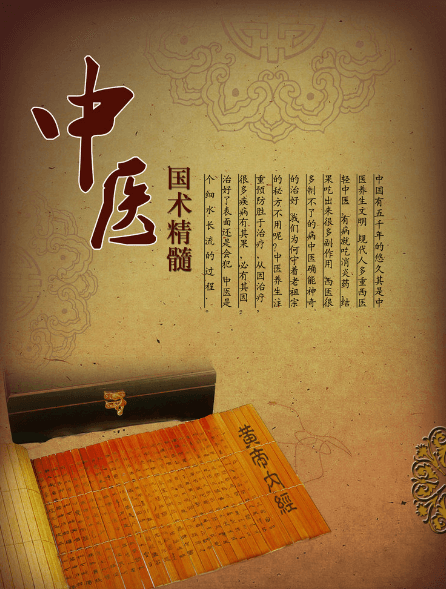 中医
国术精髓
中国有五千年的悠久其是中
医养生文明 现代人多重西医
轻中医 有病就吃消炎药 结
果吃出来很多副作用 西医很
多制不了的病中医确能神奇
的治好 我们为何守着老祖宗
的秘方不用呢?中医养生注
重预防胜于治疗,从因治疗,
很多疾病有其果,必有其因
治好了表面还是会犯 中医是
个细水长流的过程。
黄帝内經